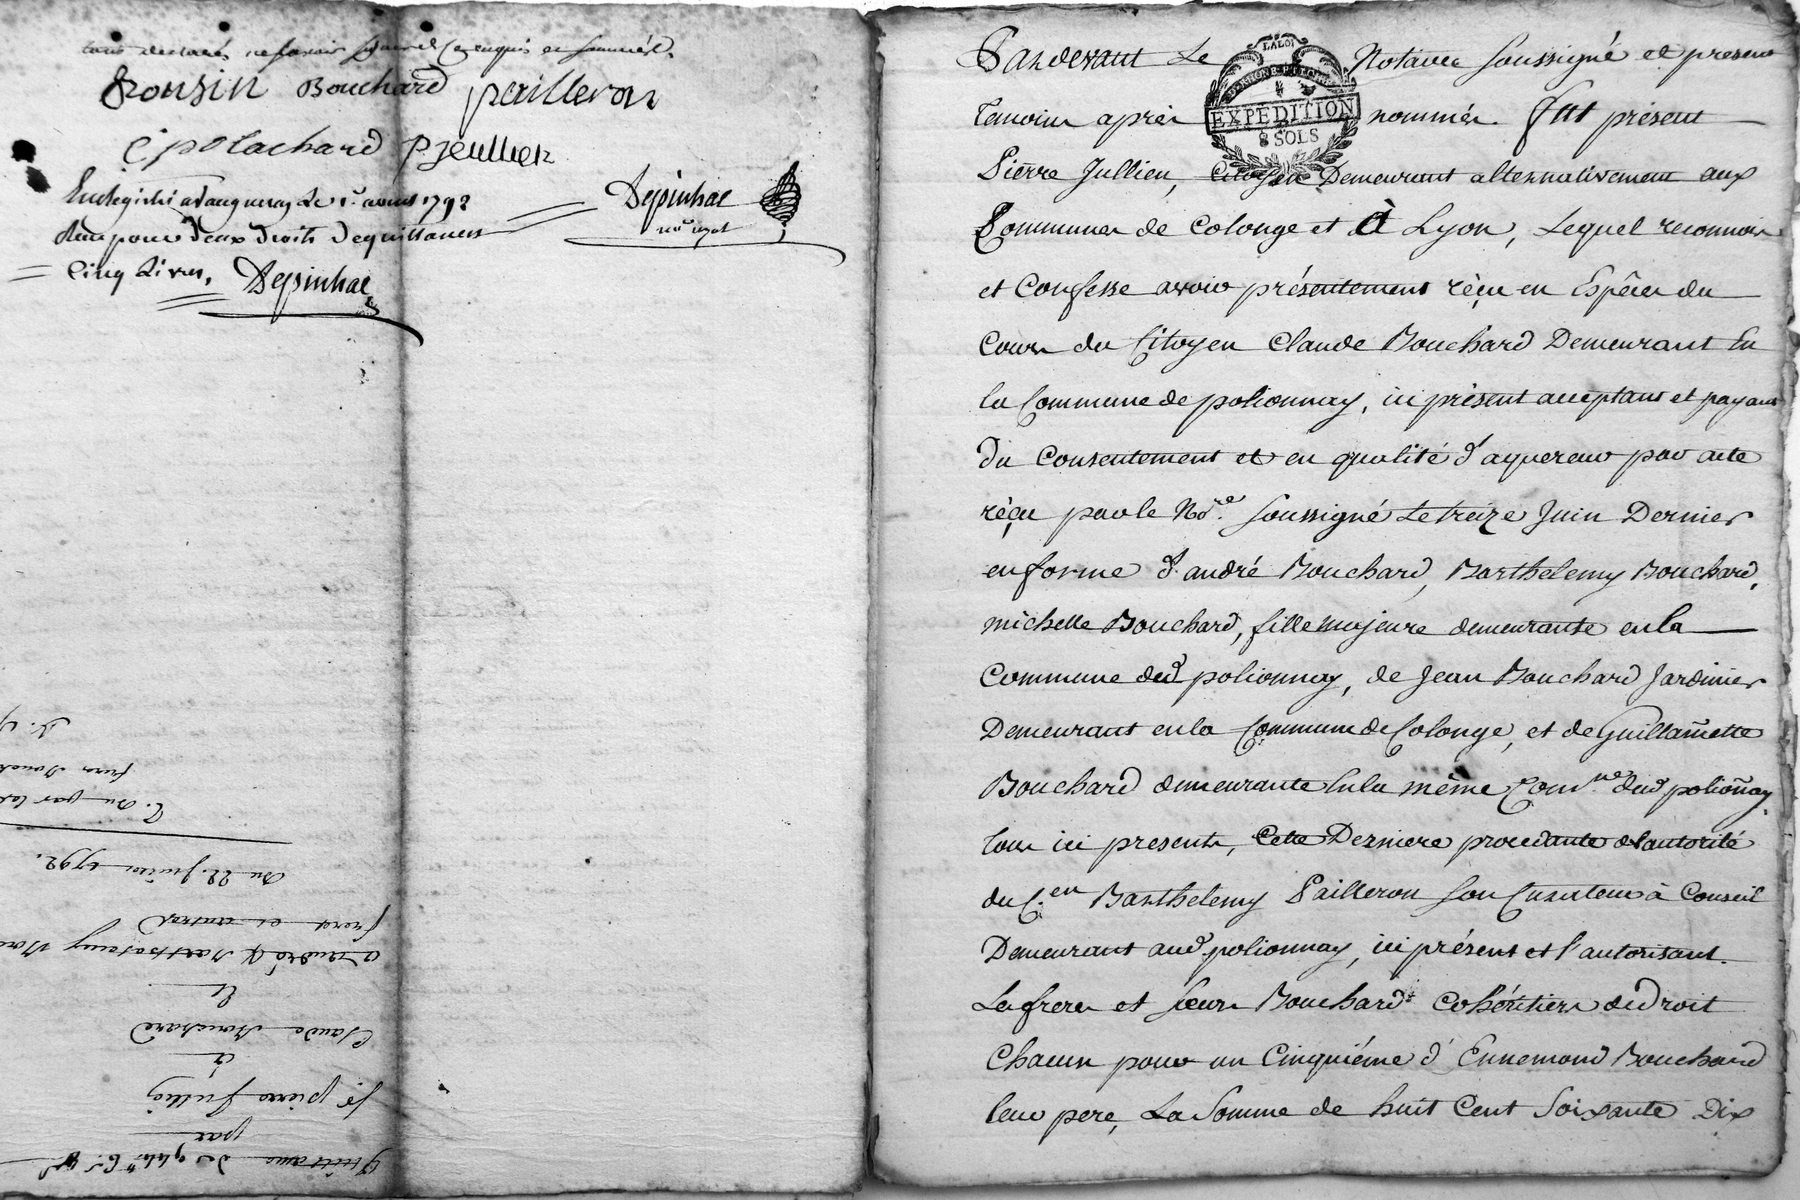 tous declaré ne savoir signer de ce enquis et sommés.
Ronsin Bouchard Pailleron
C P Clachard P Jeullien
Enregistré a Vaugneray le 1.r aoust 1792
Reçu pour deux droits de quittances
Cinq Livres, Depinhac
Depinhac
Quittance de 944 # 6 s 8 d
par
S.r pierre Jullien
à
Claude Bouchard
et
andré & Barthelemy Bou
frere et autres
Du 22. Juillet 1792.
Pardevant Le Notaire Soussigné et present
LA LOI
RHONE ET LOIRE
EXPEDITION
8 SOLS
Temoins après nommés. Fut présent
Pierre Jullien, Citoyen Demeurant alternativement aux
Communes de Colonge et à Lyon, Lequel reconnoit
et Confesse avoir présentement réçu en Espèces du
Cours du Citoyen Claude Bouchard Demeurant En
la Commune de polionnay, ici présent acceptant et payant
Du Consentement et en qualité d'aquereur par acte
réçu par le No.re Soussigné Le treize Juin Dernier
en forme d'andré Bouchard, Barthelemy Bouchard,
michelle Bouchard, fille majeure demeurante en la
Commune dud polionnay, de Jean Bouchard Jardinier
Demeurant en la Commune de Colonge, et de Guillamette
Bouchard demeurante En la même Com.ne dud polionay.
tous ici presents, Cette Derniere procedante de l'autorité
du C.en Barthelemy Pailleron Son Curateur à Conseil
Demeurant aud polionnay, ici présent et l'autorisant.
Les freres et Sœurs Bouchard Cohéritiers de Droit
Chacun pour un Cinquiéme d'Ennemond Bouchard
leur pere, La Somme de huit Cent Soixante Dix